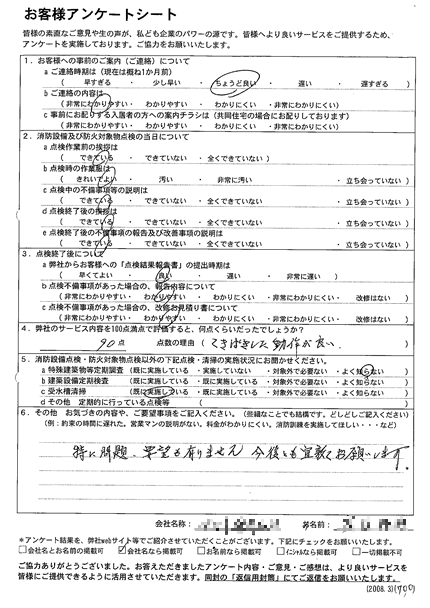 お客様アンケートシート
皆様の素直なご意見や生の声が、私ども企業のパワーの源です。皆様へより良いサービスをご提供するため、
アンケートを実施しております。ご協力をお願いいたします。
1．お客様への事前のご案内（ご連絡）について
a ご連絡時期は（現在は概ね1か月前）
（ 早すぎる ・ 少し早い ・ ちょうど良い ・ 遅い ・ 遅すぎる ）
b ご連絡の内容は
（非常にわかりやすい ・ わかりやすい ・ わかりにくい ・ 非常にわかりにくい）
c 事前にお配りする入居者の方への案内チラシは（共同住宅の場合にお配りしております）
（非常にわかりやすい ・ わかりやすい ・ わかりにくい ・ 非常にわかりにくい）
2．消防設備及び防火対象物点検の当日について
a 点検作業前の挨拶は
（ できている ・ できていない ・ 全くできていない ）
b 点検時の作業服は
（ きれいでよい ・ 汚い ・ 非常に汚い ・ 立ち会っていない ）
c 点検中の不備事項等の説明は
（ できている ・ できていない ・ 全くできていない ・ 立ち会っていない ）
d 点検終了後の挨拶は
（ できている ・ できていない ・ 全くできていない ・ 立ち会っていない ）
e 点検終了後の不備事項の報告及び改善事項の説明は
（ できている ・ できていない ・ 全くできていない ・ 立ち会っていない ）
3．点検終了後について
a 弊社からお客様への「点検結果報告書」の提出時期は
（ 早くてよい ・ 良い ・ 遅い ・ 非常に遅い ）
b 点検不備事項があった場合の、報告内容について
（非常にわかりやすい ・ わかりやすい ・ わかりにくい ・ 非常にわかりにくい ・ 改修はない）
c 点検不備事項があった場合の、改修お見積り書について
（非常にわかりやすい ・ わかりやすい ・ わかりにくい ・ 非常にわかりにくい ・ 改修はない）
4．弊社のサービス内容を100点満点で評価すると、何点くらいだったでしょうか？
90 点 点数の理由（ てきぱきした動作が良い。 ）
5．消防設備点検・防火対象物点検以外の下記点検・清掃の実施状況にお聞かせください。
a 特殊建築物等定期調査 （既に実施している ・ 実施していない ・ 対象外で必要ない ・ よく知らない）
b 建築設備定期検査 （既に実施している ・ 実施していない ・ 対象外で必要ない ・ よく知らない）
c 受水槽清掃 （既に実施している ・ 実施していない ・ 対象外で必要ない ・ よく知らない）
d その他 定期的に行っている点検等 （ ）
6．その他 お気づきの内容や、ご要望事項をご記入ください。（些細なことでも結構です。どしどしご記入ください）
（例：約束の時間に遅れた。営業マンの説明がない。料金がわかりにくい。消防訓練を実施してほしい・・・など）
特に問題、要望も有りません 今後とも宜敷くお願いします。
会社名称： お名前：
*アンケート結果を、弊社webサイト等でご紹介させていただくことがございます。下記にチェックをお願いいたします。
□会社名とお名前の掲載可 ☑会社名なら掲載可 □お名前なら掲載可 □イニシャルなら掲載可 □一切掲載不可
ご協力ありがとうございました。お答えただきましたアンケート内容・ご意見・ご感想は、より良いサービスを
皆様にご提供できるように活用させていただきます。同封の「返信用封筒」にてご返信をお願いいたします。
(2008. 3)